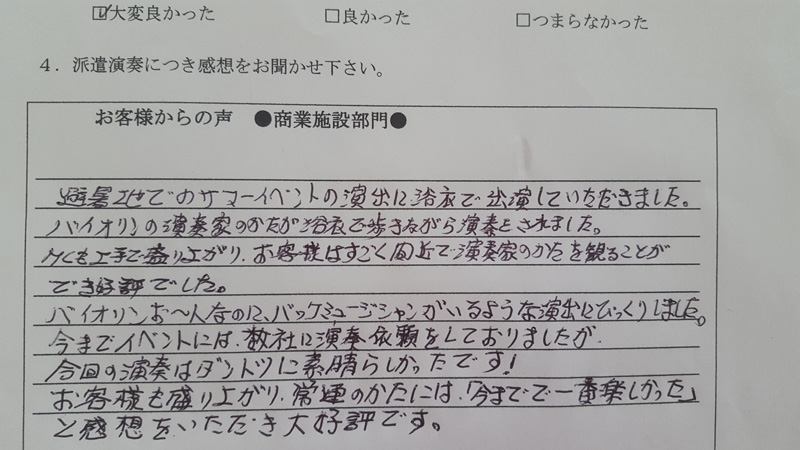 ☑大変良かった □良かった □つまらなかった
4．派遣演奏につき感想をお聞かせ下さい。
お客様からの声 ●商業施設部門●
避暑地でのサマーイベントの演出に浴衣で出演していただきました。
バイオリンの演奏家のかたが浴衣で歩きながら演奏をされました。
MCも上手で盛り上がり、お客様はすごく間近で演奏家のかたを観ることが
でき好評でした。
バイオリンお一人なのに、バックミュージシャンがいるような演出にびっくりしました。
今までイベントには、数社に演奏依頼をしておりましたが、
今回の演奏はダントツに素晴らしかったです！
お客様も盛り上がり、常連のかたには、「今までで一番楽しかった」
と感想をいただき大好評です。